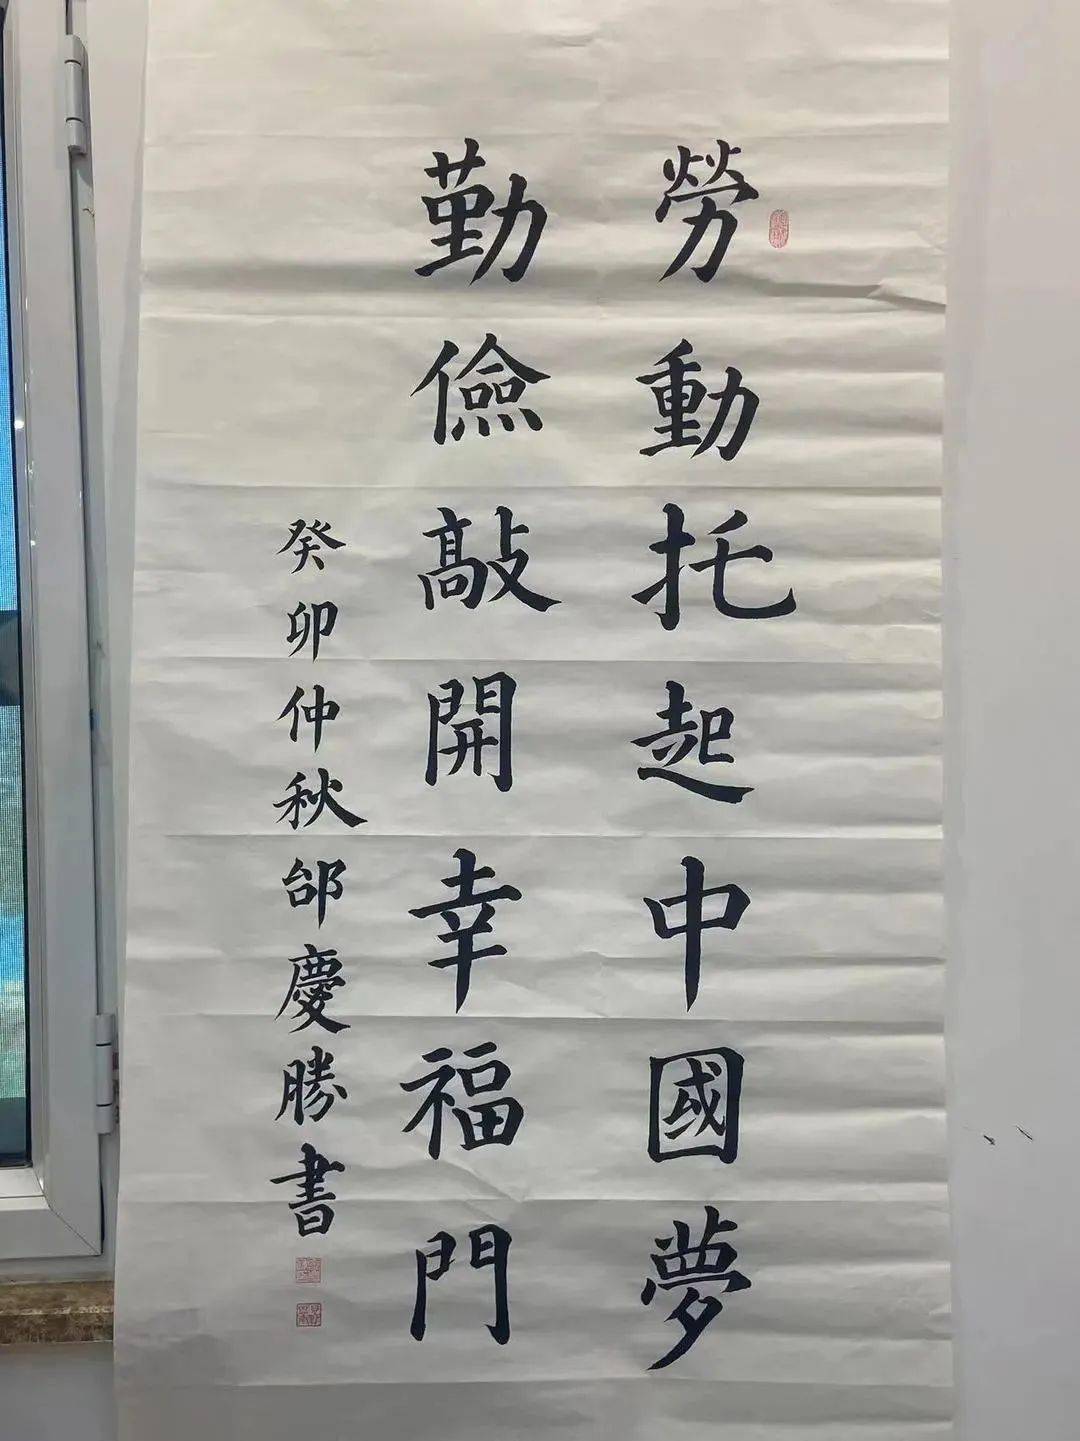 勞動托起中國夢
勤儉敲開幸福門
癸卯仲秋邰慶勝書